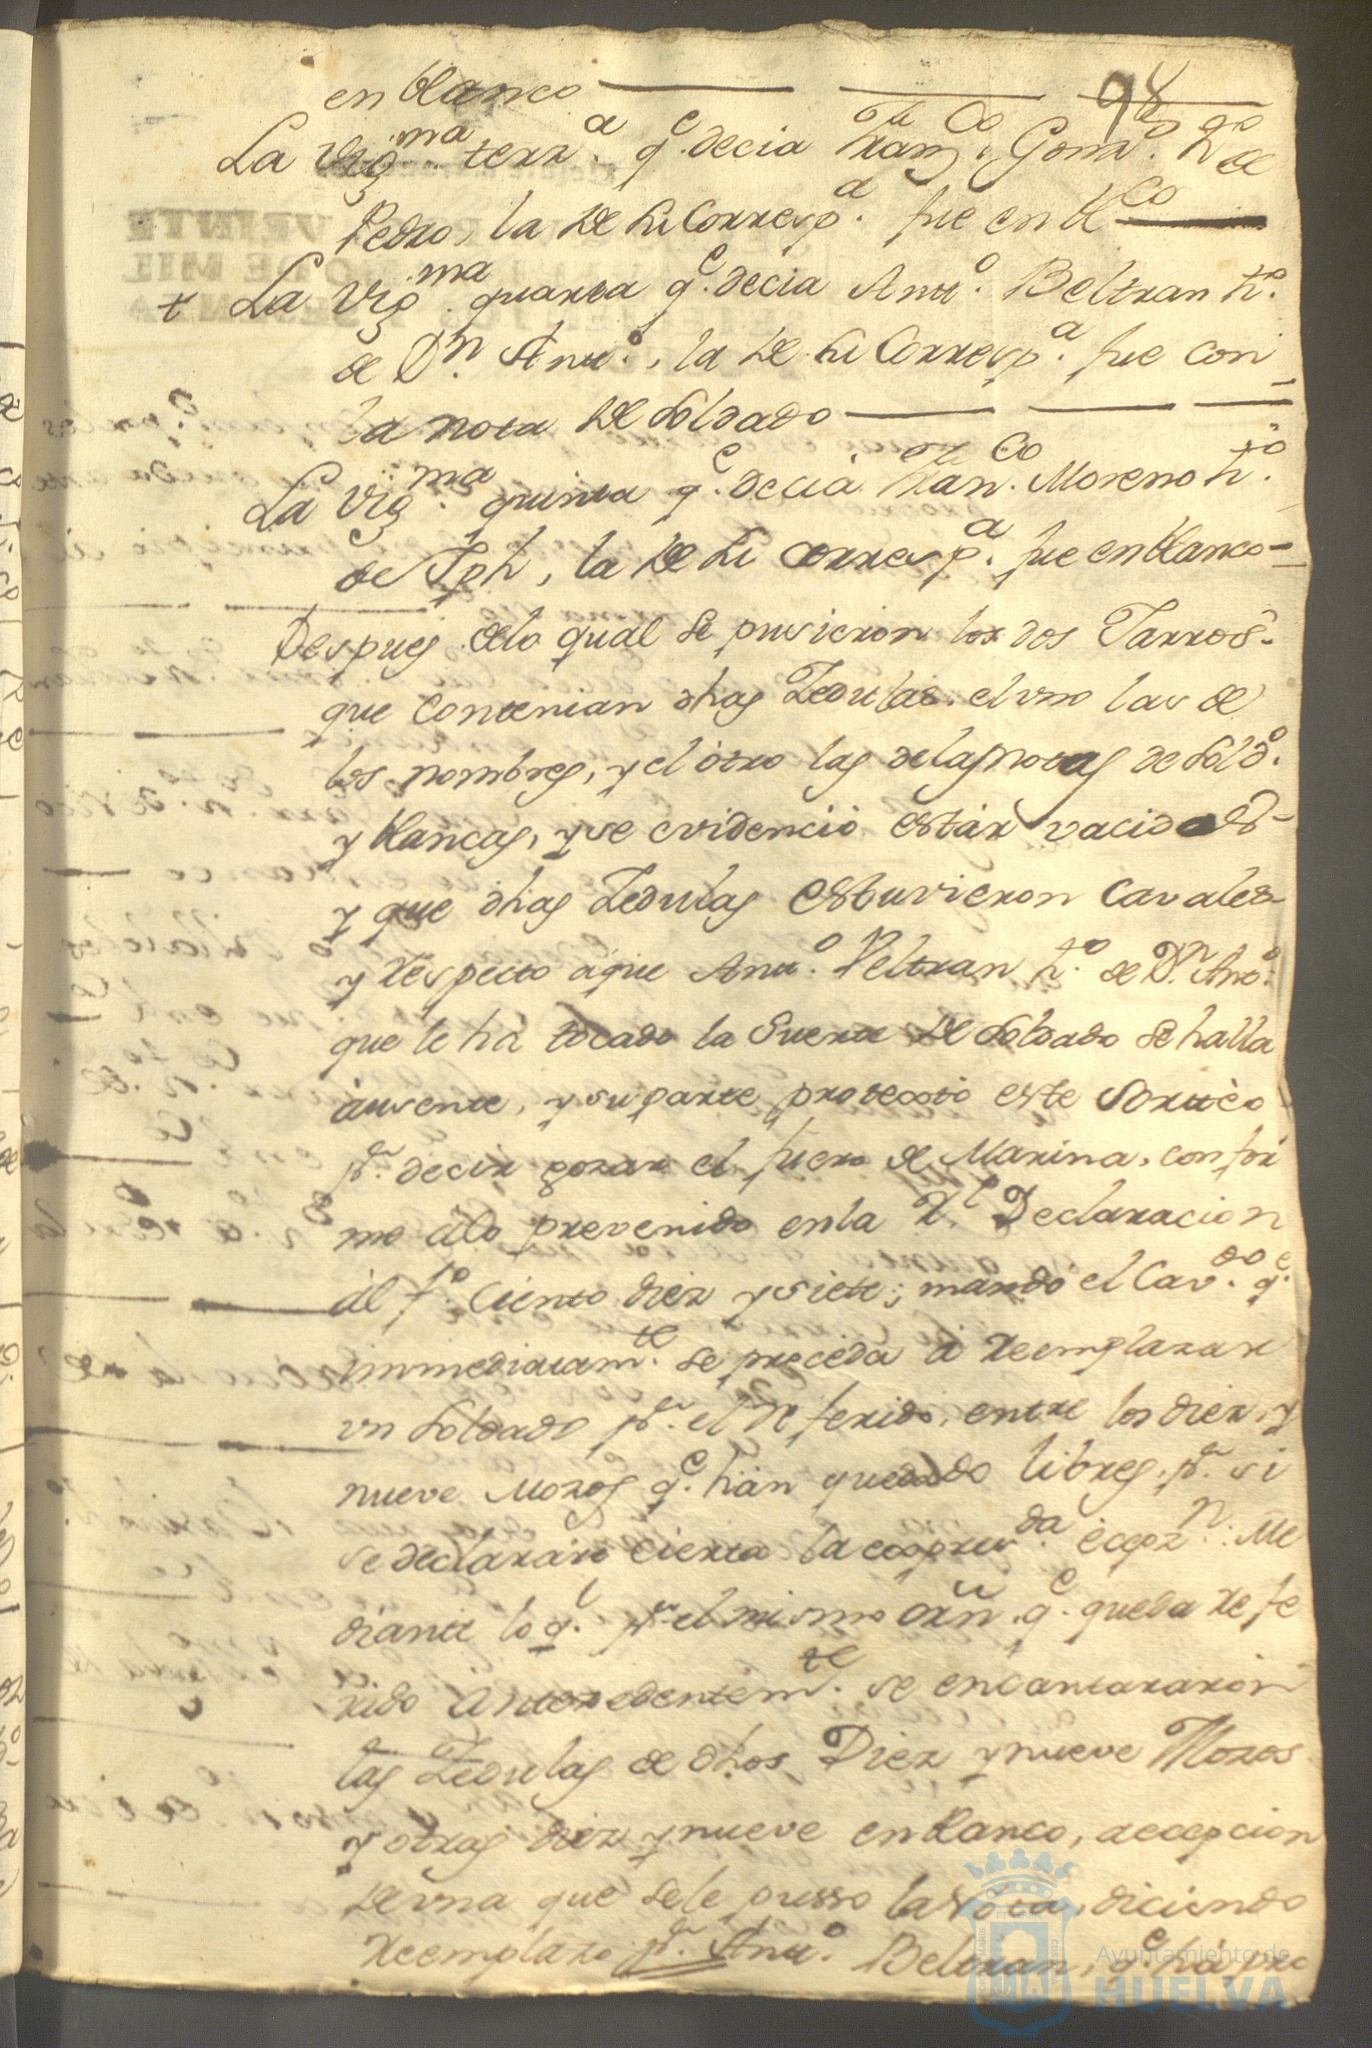 98
en blanco
La vig.ma terz.a q.e decia Fran.co Gom.z h.o de
Pedro, la de su Corresp.a fue en bl.co
+ La vig.ma quarta q.e decia Ant.o Beltran h.o
de D.n Ant.o, la de su Corresp.a fue con
la nota de soldado
La vig.ma quinta q.e decia Fran.co Moreno h.o
de Jph, la de su corresp.a fue en blanco
Despues delo qual se pusieron los dos Jarros
que contenian dhas Zedulas, el uno las de
los nombres, y el otro las delas notas de Sold.o
y blancas, y se evidenció estár vacidos
y que dhas Zedulas estuvieron cavales
y respecto aque Ant.o Veltran h.o de D.n Ant.o
que le há tocado la Suerte de Soldado se halla
áusente, y su parte protextó este Sortéo
p.r decir gozar el fuero de Marina, confor
me álo prevenido en la R.l Declaracion
ál f.o ciento diez y siete; mandó el Cav.do q.e
immediatam.te se proceda á reemplazar
un Soldado p.r el referido, entre los diez y
nueve Mozos q.e hán quedado libres, p.r si
se declarare cierta la expres.da ecepz.n: Me
diante lo q.l p.r el mismo orñ q.e queda refe
rido antezedentem.te se encantararon
las Zedulas de dhos Diez y nueve Mozos
y otras diez y nueve en blanco, a ecepcion
de una que sele pusso la Nota, diciendo
Reemplazo p.r Ant.o Beltran, q.e há pro
Ayuntamiento de
HUELVA